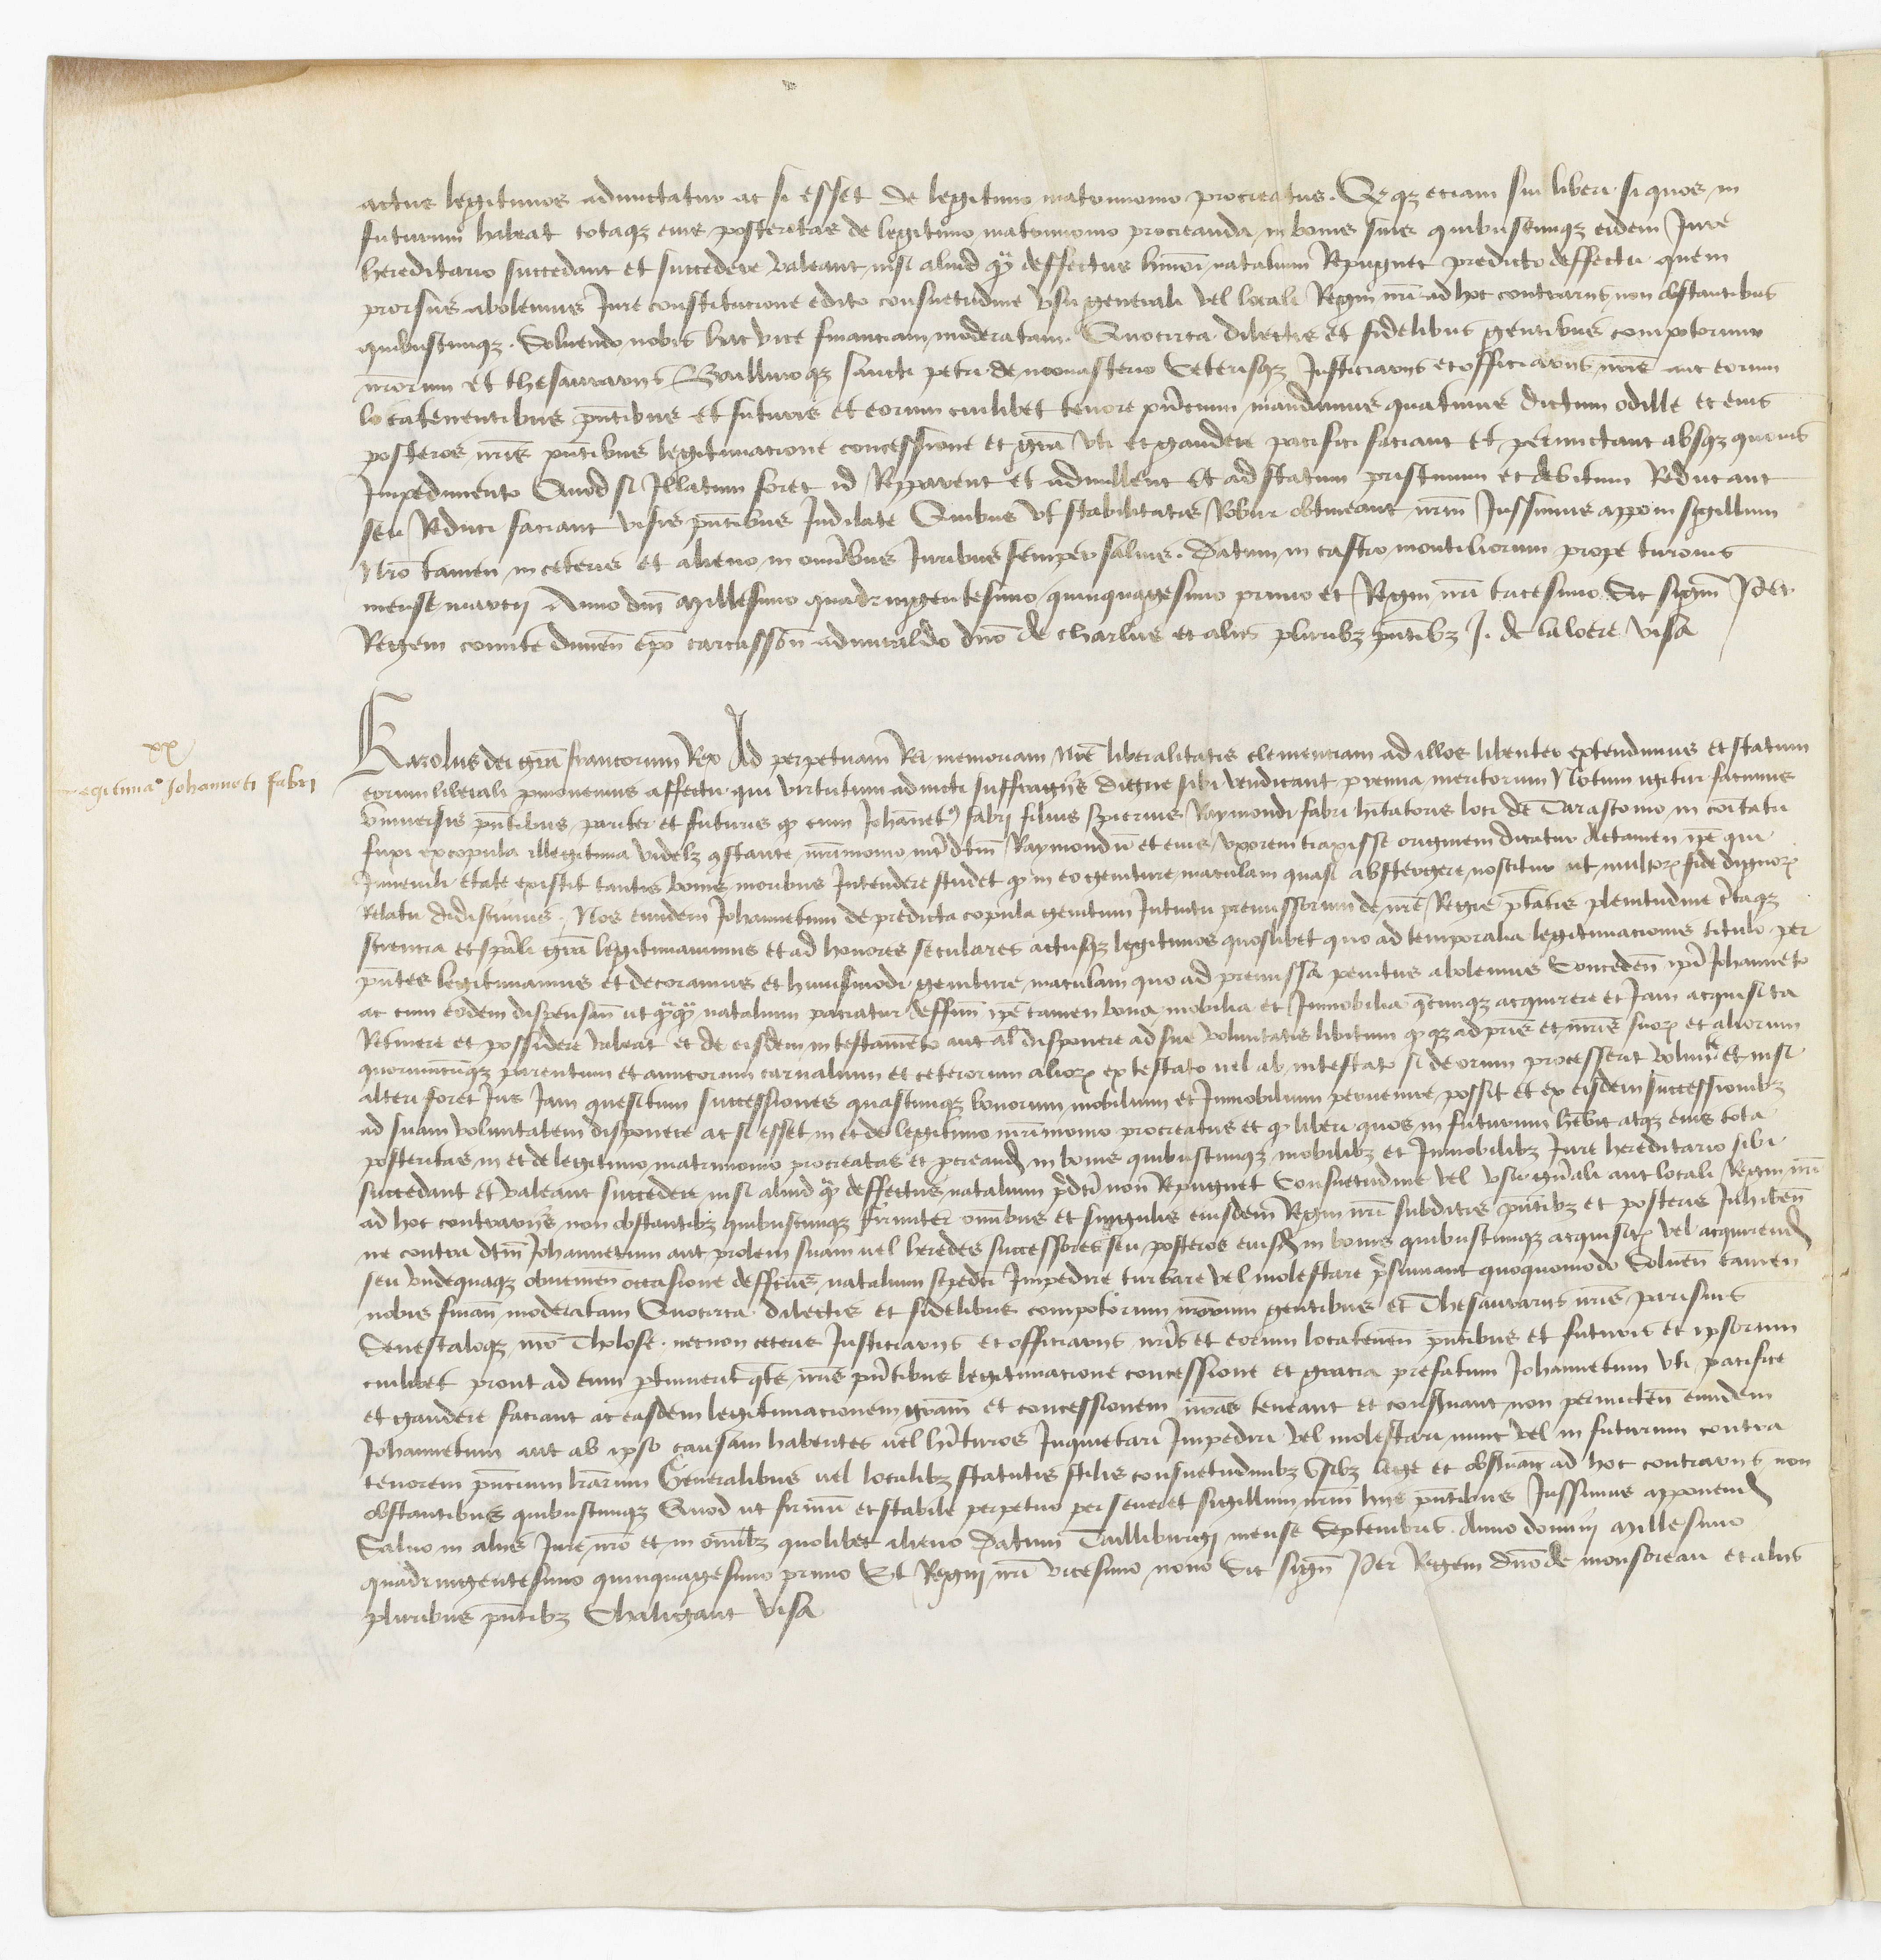 actus legitimos admictatur ac si esset de legitimo matrimonio procreatus. Qđqz eciam sui liberi si quos in
futurum habeat totaqz eius posteritas de legitimo matrimonio procreanda in bonis suis quibuscunqz eidem Jure
hereditario succedant et succedere valeant nisi aliud qm̃ deffectus hmõi natalium Repugnet predicto deffectu quem
prorsus abolemus Jure constitucione edito consuetudine usu generali vel locali Regni nr̃i ad hoc contrariis non obstantibus
quibuscunqz. Soluendo nobis hac vice financiam moderatam. Quocirca dilectis et fidelibus gentibus compotorum
nr̃orum et thesaurariis Bailliuoqz sancti petri de monasterio Ceterisqz Justiciariis et officiariis nr̃is aut eorum
locatenentibus pñtibus et futuris et eorum cuilibet tenore pñcium mandamus quatinus dictum odille et eius
posteros nr̃is pñtibus legitimacione concessione et grã uti et gaudere pacifici faciant et permictant absqz quouis
Impedimento Quod si Illatum foret id Reparent et adnullent Et ad statum pristinum et debitum Reducant
seu Reduci faciant visis pñtibus Indilate Quibus ut stabilitatis Robur obtineant nr̃m Jussimus apponi sigillum
Nr̃o tamen in ceteris et alieno in omĩbus Juribus semper saluis. Datum in castro montiliorum prope turonis
mense marcii Anno dñi Millesimo quadringentesimo quinquagesimo primo et Regni nr̃i tricesimo Sic sigñ Per
Regem comite dunen̄ ep̃o carcasson̄ admiraldo dño de charlus et aliis pluribz pñtibz J. de laloere visa
xx
legitimaº Johanneti fabri
Karolus dei grã francorum Rex Ad perpetuam Rei memoriam Nr̃e liberalitatis clementiam ad illos libenter extendimus et statum
eorum liberali promouemus affectu qui virtutum adiuncti suffragiis digne sibi vendicant premia meritorum Notum igitur facimus
Vniuersis pñtibus pariter et futuris qđ cum Johãnetꝰ fabri filius Raymondi fabri hĩtatoris loci de Tarascono in com̃itatu
fuxi ex copula illegitima videlz constante mr̃imonio int̃ dc̃m Raymondũ et eius uxorem traxisse originem dicatur Actamen ip̃e qui
Juuenili etate existit tantis bonis moribus Intendere studet qđ in eo geniture maculam quasi abstergere noscitur ut multorꝝ fide dignorꝝ
Relatu didiscimus. Nos eundem Johannetum de predicta copula genitum Intuitu premissorum de nr̃e Regie pt̃atis plenitudine c̃taqz
sciencia et sp̃ali grã legitimauimus et ad honores seculares actusqz legitimos quoslibet quo ad temporalia legitimacionis titulo per
pñtes legitimamus et decoramus et huiusmodi geniture maculam quo ad premissa penitus abolemus Conceden̄ ip̃i Johanneto
ac cum eodem dispensan̄ ut natalium paciatur deffm̃ ip̃e tamen bona mobilia et Inmobilia qcunqz acquirere et Jam acquisita
Retinere et possidere valeat et de eisdem in testamento aut al̃s disponere ad sue voluntatis libitum qđqz ad pr̃is et mr̃is suorꝝ et aliorum
quorumcunqz parentum et amicorum carnalium et ceterorum aliorꝝ ex testato uel ab intestato si de eorum processerit volunte et nisi
alteri foret Jus Jam quesitum successiones quascunqz bonorum mobilium et Inmobilium peruenire possit et ex eisdem successionibz
ad suam voluntatem disponere ac si esset in et de legitimo mr̃imonio procreatus et qđ liberi quos in futurum hẽbit atqz eius tota
posteritas in et de legitimo matrimonio procreatas et procreand in bonis quibuscunqz mobilibz et Inmobilibz Jure hereditario sibi
succedant et valeant succedere nisi aliud qm̃ deffectus natalium p̃dc̃i non Repugnet Consuetudine vel usu gñali aut locali Regni nr̃i
ad hoc contrariis non obstantibz quibuscunqz firmiter omĩbus et singulis eiusdem Regni nr̃i subditis pñtibz et posteris Inhiben̄
ne contra dc̃m Johannetum aut prolem suam uel heredes successores seu posteros eiusd in bonis quibuscunqz acquisitꝝ vel acquirend
seu undequaqz obuenien̄ occasione deffc̃us natalium Impedire turbare vel molestare p̃sumant quoquomodo Soluen̄ tamen
nobis finan̄ moderatam Quocirca dilectis et fidelibus compotorum nr̃orum gentibus et Thesaurariis nr̃is parisius
Senescaloqz nr̃o Tholose. necnon ceteris Justiciariis et officiariis nr̃is et eorum locatenen̄ pñtibus et futuris et ipsorum
cuilibet prout ad eum ptinuerit nr̃is pñtibus legitimacione concessione et gracia prefatum Johannetum uti pacifice
et gaudere faciant ac easdem legitimacionem grãm et concessionem nr̃as teneant et conseruant non permicten̄ eundem
Johannetum aut ab ipso causam habentes uel hĩturos Inquietari Impediri vel molestari nunc vel in futurum contra
tenorem pñcium lr̃arum Generalibus uel localibz statutis stilis consuetudinibz usibz lege et obseruanc ad hoc contrariis non
obstantibus quibuscunqz Quod ut firmũ et stabile perpetuo perseueret sigillum nr̃m hiis pñtibus Jussimus apponend
Saluo in aliis Jure nr̃o et in omĩbz quolibet alieno Datum Tailliburgi mense Septembris. Anno domini Millesimo
quadringentesimo quinquagesimo primo Et Regni nr̃i vicesimo nono Sic sigñ Per Regem dño de monsoreau et aliis
pluribus pñtibz Chaligaut visa